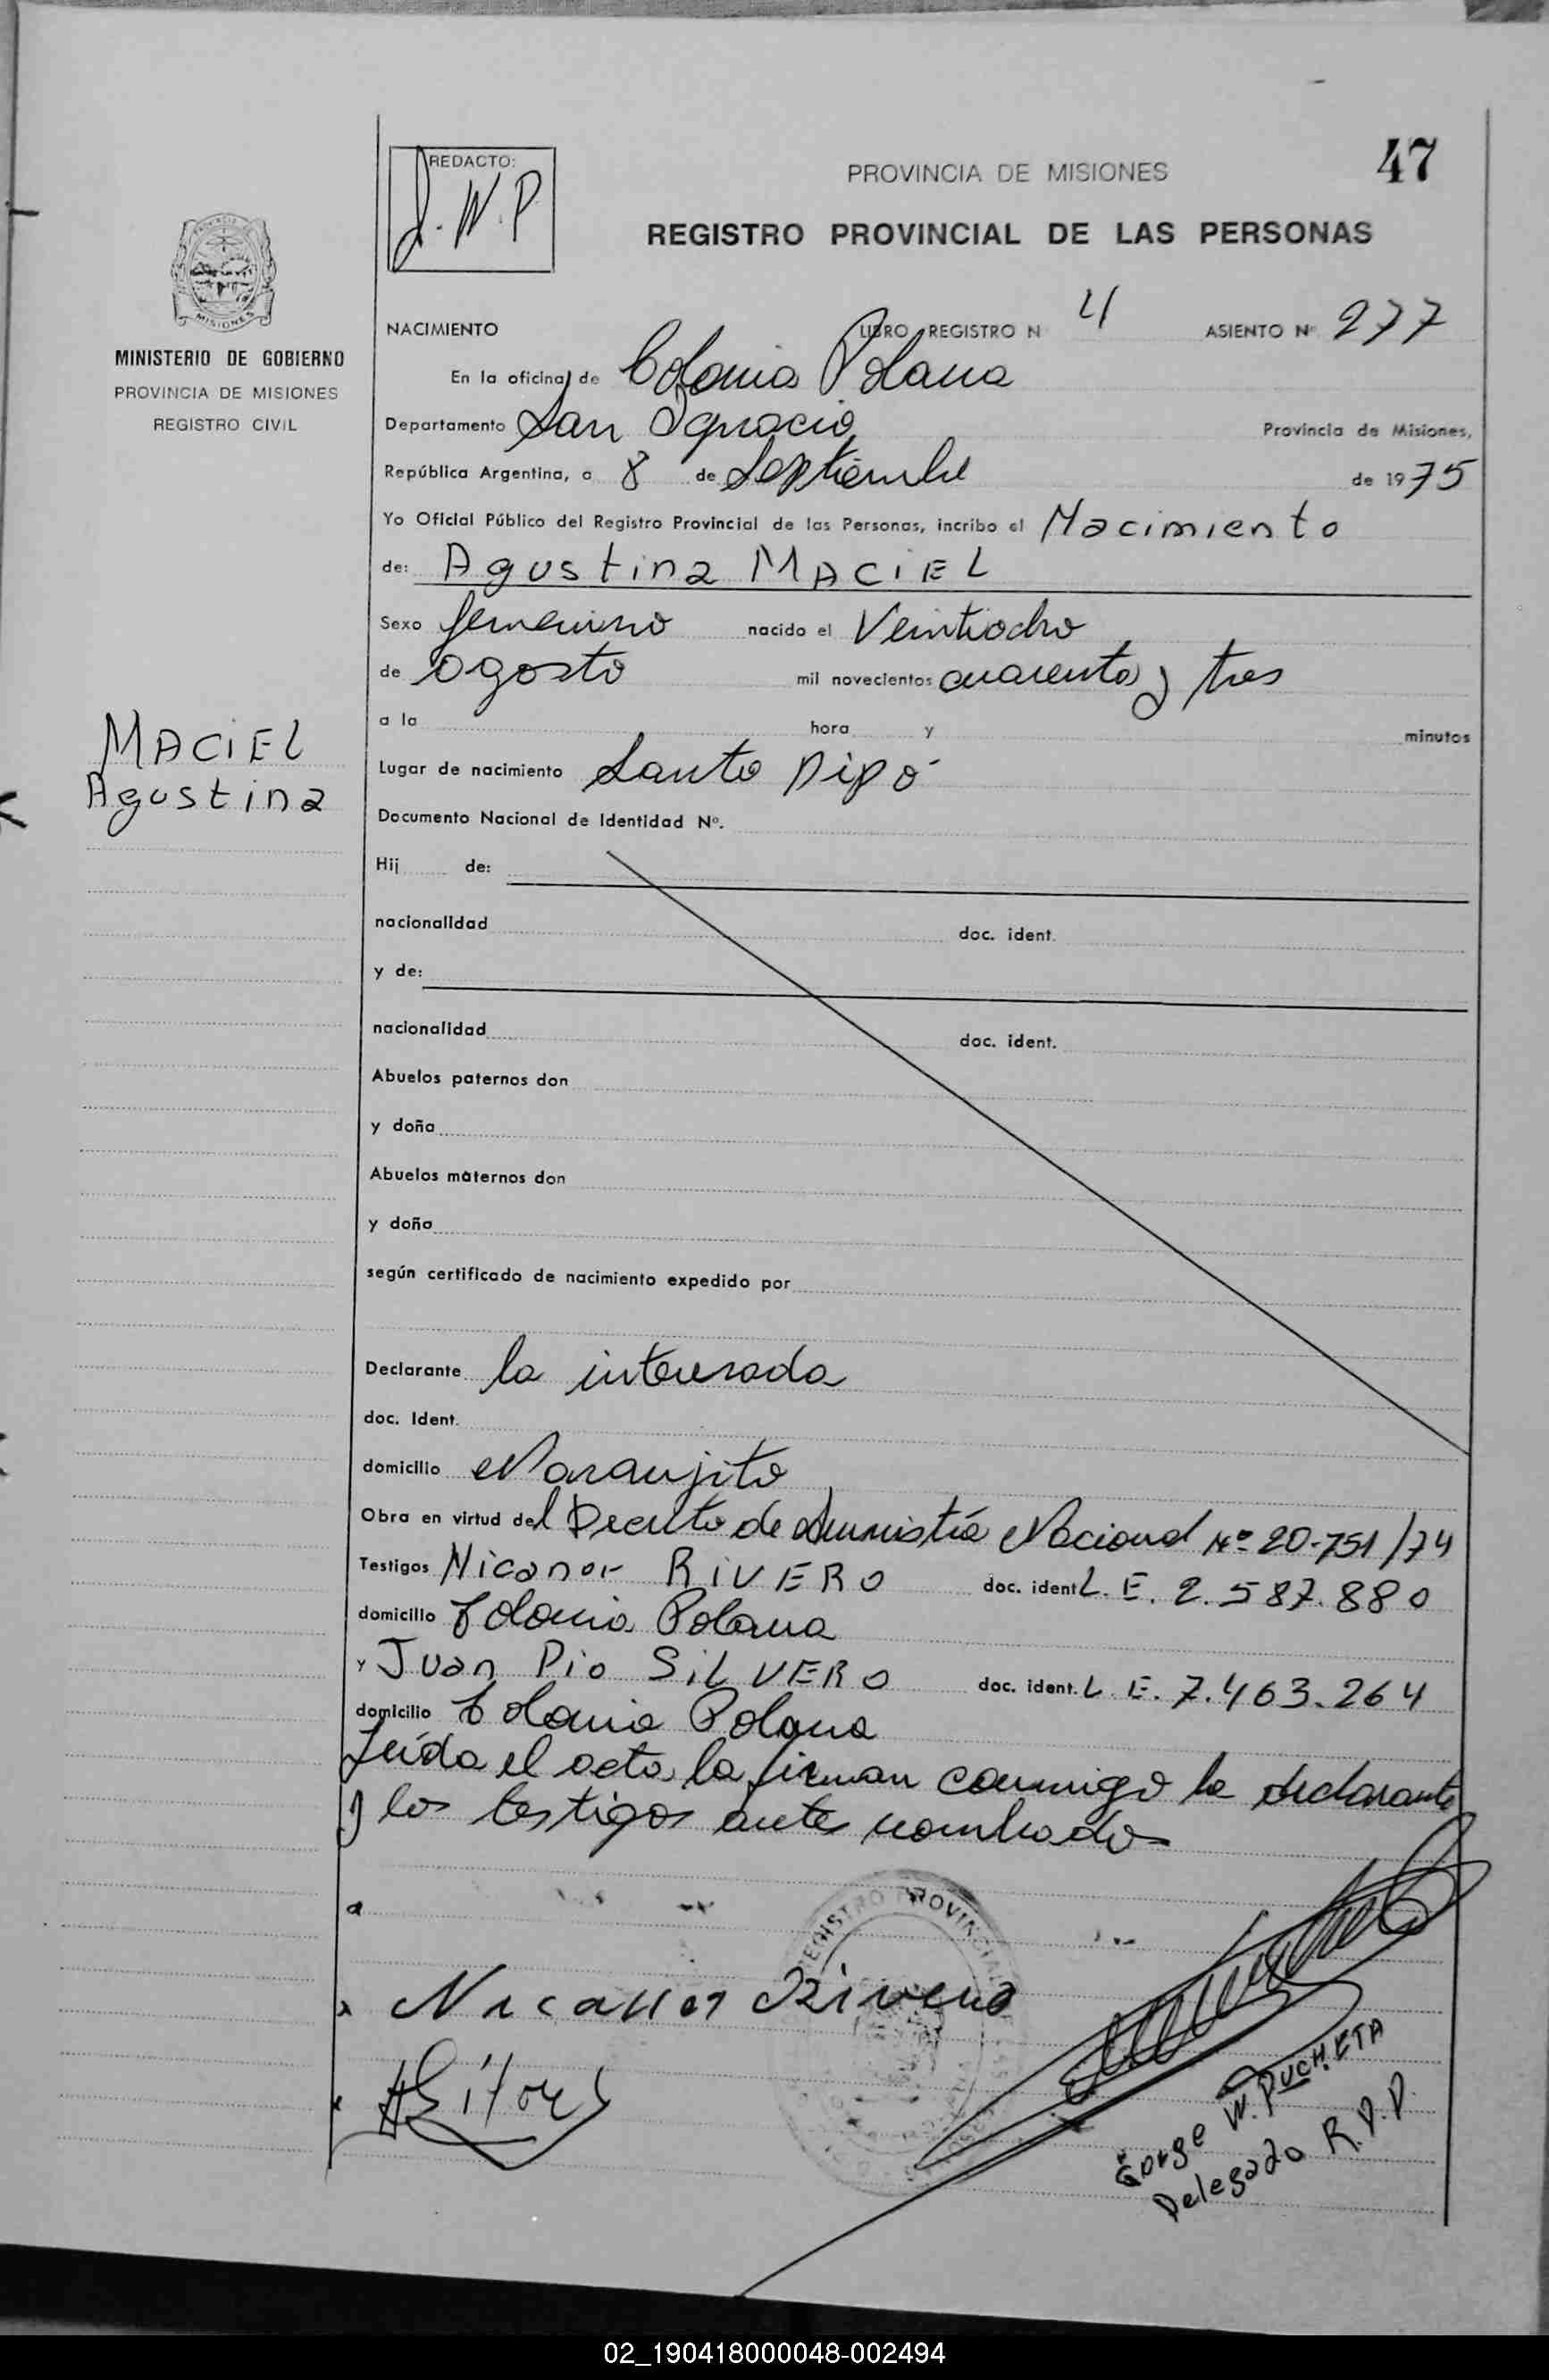 REDACTO:
J.W.P.
PROVINCIA DE MISIONES
47
REGISTRO PROVINCIAL DE LAS PERSONAS
MISIONES
MINISTERIO DE GOBIERNO
PROVINCIA DE MISIONES
REGISTRO CIVIL
NACIMIENTO LIBRO REGISTRO N 4 ASIENTO Nº 277
En la oficina de Colonia Polana
Departamento San Ignacio Provincia de Misiones,
República Argentina, a 8 de Septiembre de 1975
Yo Oficial Público del Registro Provincial de las Personas, incribo el Nacimiento
de: Agustina MACIEL
Sexo femenino nacido el Veintiocho
de agosto mil novecientos cuarenta y tres
a la hora y minutos
MACIEL
Agustina
Lugar de nacimiento Santo Pipó
Documento Nacional de Identidad Nº.
Hij de:
nacionalidad doc. ident.
y de:
nacionalidad doc. ident.
Abuelos paternos don
y doña
Abuelos maternos don
y doña
según certificado de nacimiento expedido por
Declarante la interesada
doc. Ident.
domicilio Naranjito
Obra en virtud del Decreto de Amnistía Nacional Nº 20.751/74
Testigos Nicanor RIVERO doc. ident L. E. 2.587.880
domicilio Colonia Polana
y Juan Pio SILVERO doc. ident. L. E. 7.463.264
domicilio Colonia Polana
Leída el acta, la firman conmigo la declarante
y los testigos ante nombrados
REGISTRO PROVINCIAL
Nicanor Rivero
Gorge W. PUCHETA
Delegado R.P.P.
02_190418000048-002494